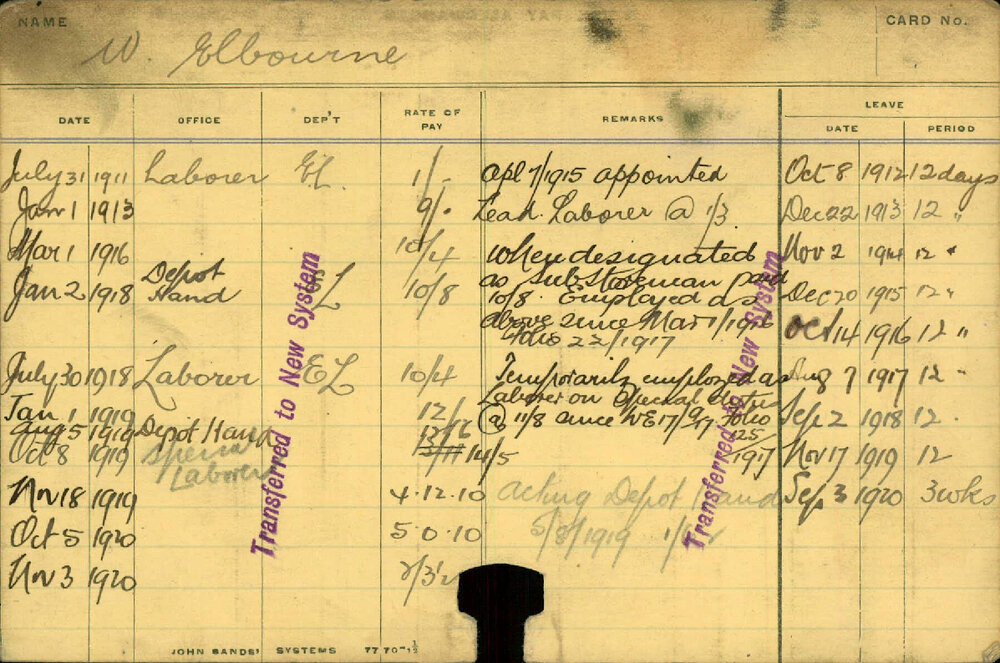 NAME
CARD No.
W. Elbourne
DATE OFFICE DEP'T RATE OF PAY REMARKS LEAVE
DATE PERIOD
July 31 1911 Laborer EL. 1/- Apl 7/1915 appointed Oct 8 1912 12 days
Jan 1 1913 9/. Lead. Laborer @ 1/3 Dec 22 1913 12 "
Mar 1 1916 10/4 When designated Nov 2 1914 12 "
Jan 2 1918 Depot Hand EL 10/8 as SubStoreman paid
10/8. Employed as Dec 20 1915 12 "
above since Mar 1/1916 Oct 14 1916 12 "
Folio 22/1917
July 30 1918 Laborer EL 10/4 Temporarily employed as Aug 7 1917 12 "
Laborer on Special
Jan 1 1919 12/ @ 11/8 since WE 17/9/17 Folio Sep 2 1918 12 .
Aug 5 1919 Depot Hand 125/
Oct 8 1919 Special Laborer 14/5 1917 Nov 17 1919 12
Nov 18 1919 4.12.10 Acting Depot Hand Sep 3 1920 3 wks
Oct 5 1920 5.0.10 5/8/1919
Nov 3 1920
Transferred to New System
Transferred to New System
JOHN SANDS' SYSTEMS